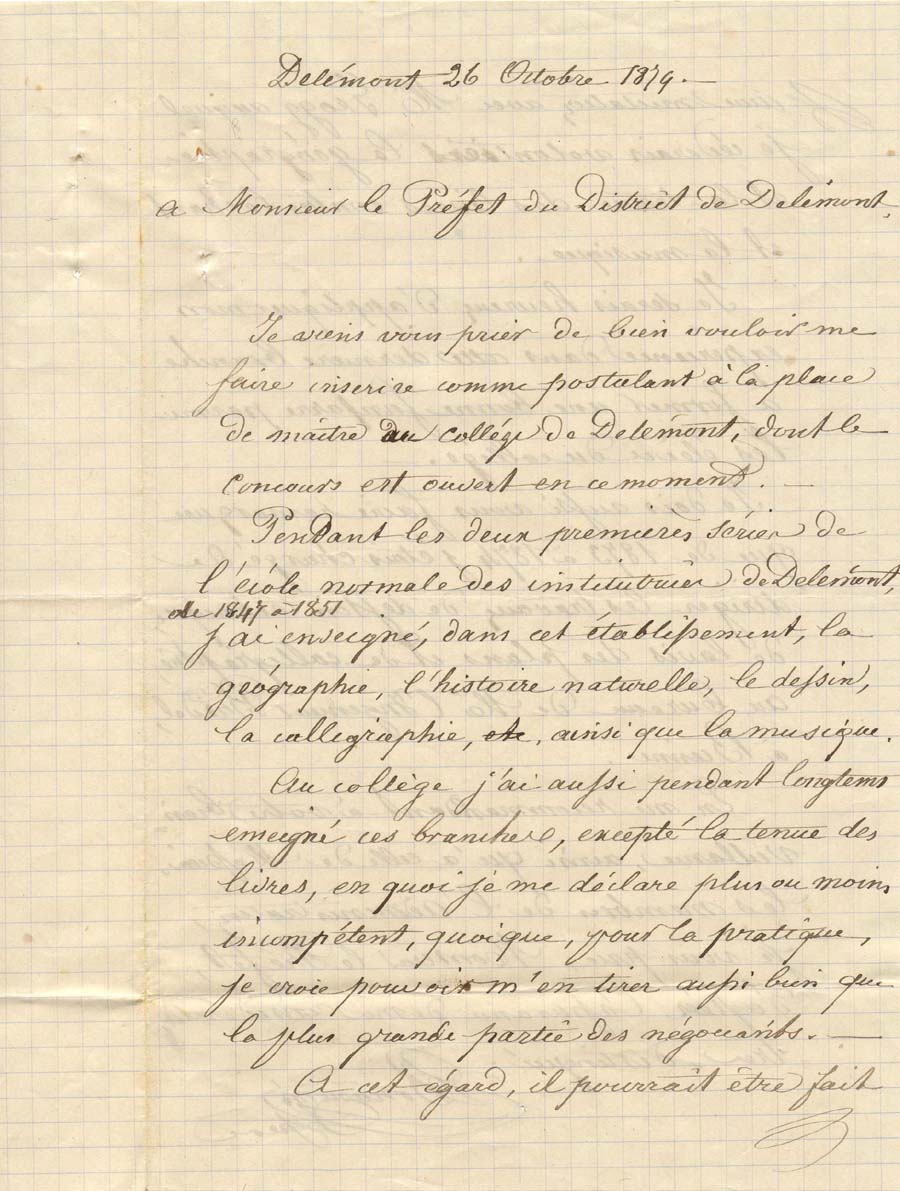 Delémont 26 Octobre 1879. —
a Monsieur le Préfet du District de Delémont,
Je viens vous prier de bien vouloir me
faire inscrire comme postulant à la place
de maître au collége de Delémont, dont le
concours est ouvert en ce moment. —
Pendant les deux premières séries de
l'école normale des institutrices de Delémont,
de 1847 à 1851
j'ai enseigné, dans cet établissement, la
géographie, l'histoire naturelle, le dessin,
la calligraphie, ainsi que la musique.
Au collège j'ai aussi pendant longtems
enseigné ces branches, excepté la tenue des
livres, en quoi je me déclare plus ou moins
incompétent, quoique, pour la pratique,
je crois pouvoir m'en tirer aussi bien que
la plus grande partie des négociants. —
A cet égard, il pourrait être fait